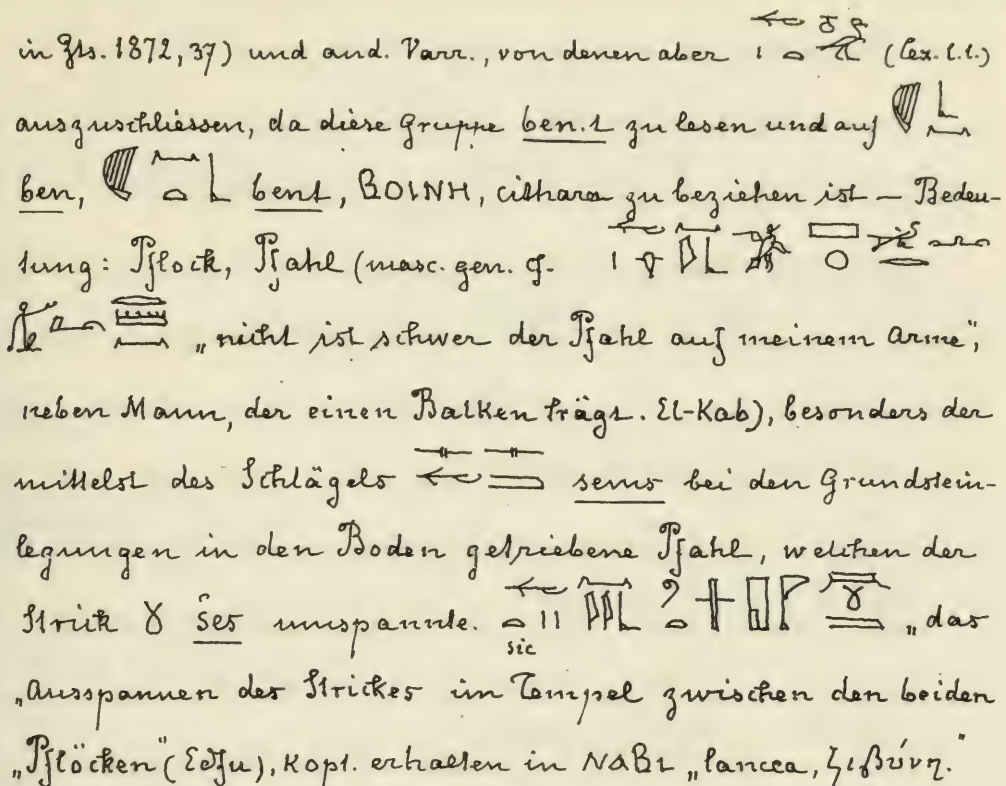 in Zts. 1872, 37) und and. Varr., von denen aber (lex. l.l.)
auszuschliessen, da diese Gruppe ben.t zu lesen und auf
ben, bent, ⲂⲞⲒⲚⲎ, cithara zu beziehen ist — Bedeu-
tung: Pflock, Pfahl (masc. gen. cf.
„nicht ist schwer der Pfahl auf meinem Arme",
neben Mann, der einen Balken trägt. El-Kab), besonders der
mittelst des Schlägels sems bei den Grundstein-
legungen in den Boden getriebene Pfahl, welchen der
Strick šes umspannte. sic „das
„Ausspannen des Strickes im Tempel zwischen den beiden
„Pflöcken" (Edfu), Kopt. erhalten in ⲚⲀⲂⲒ „lancea, ζιβύνη."